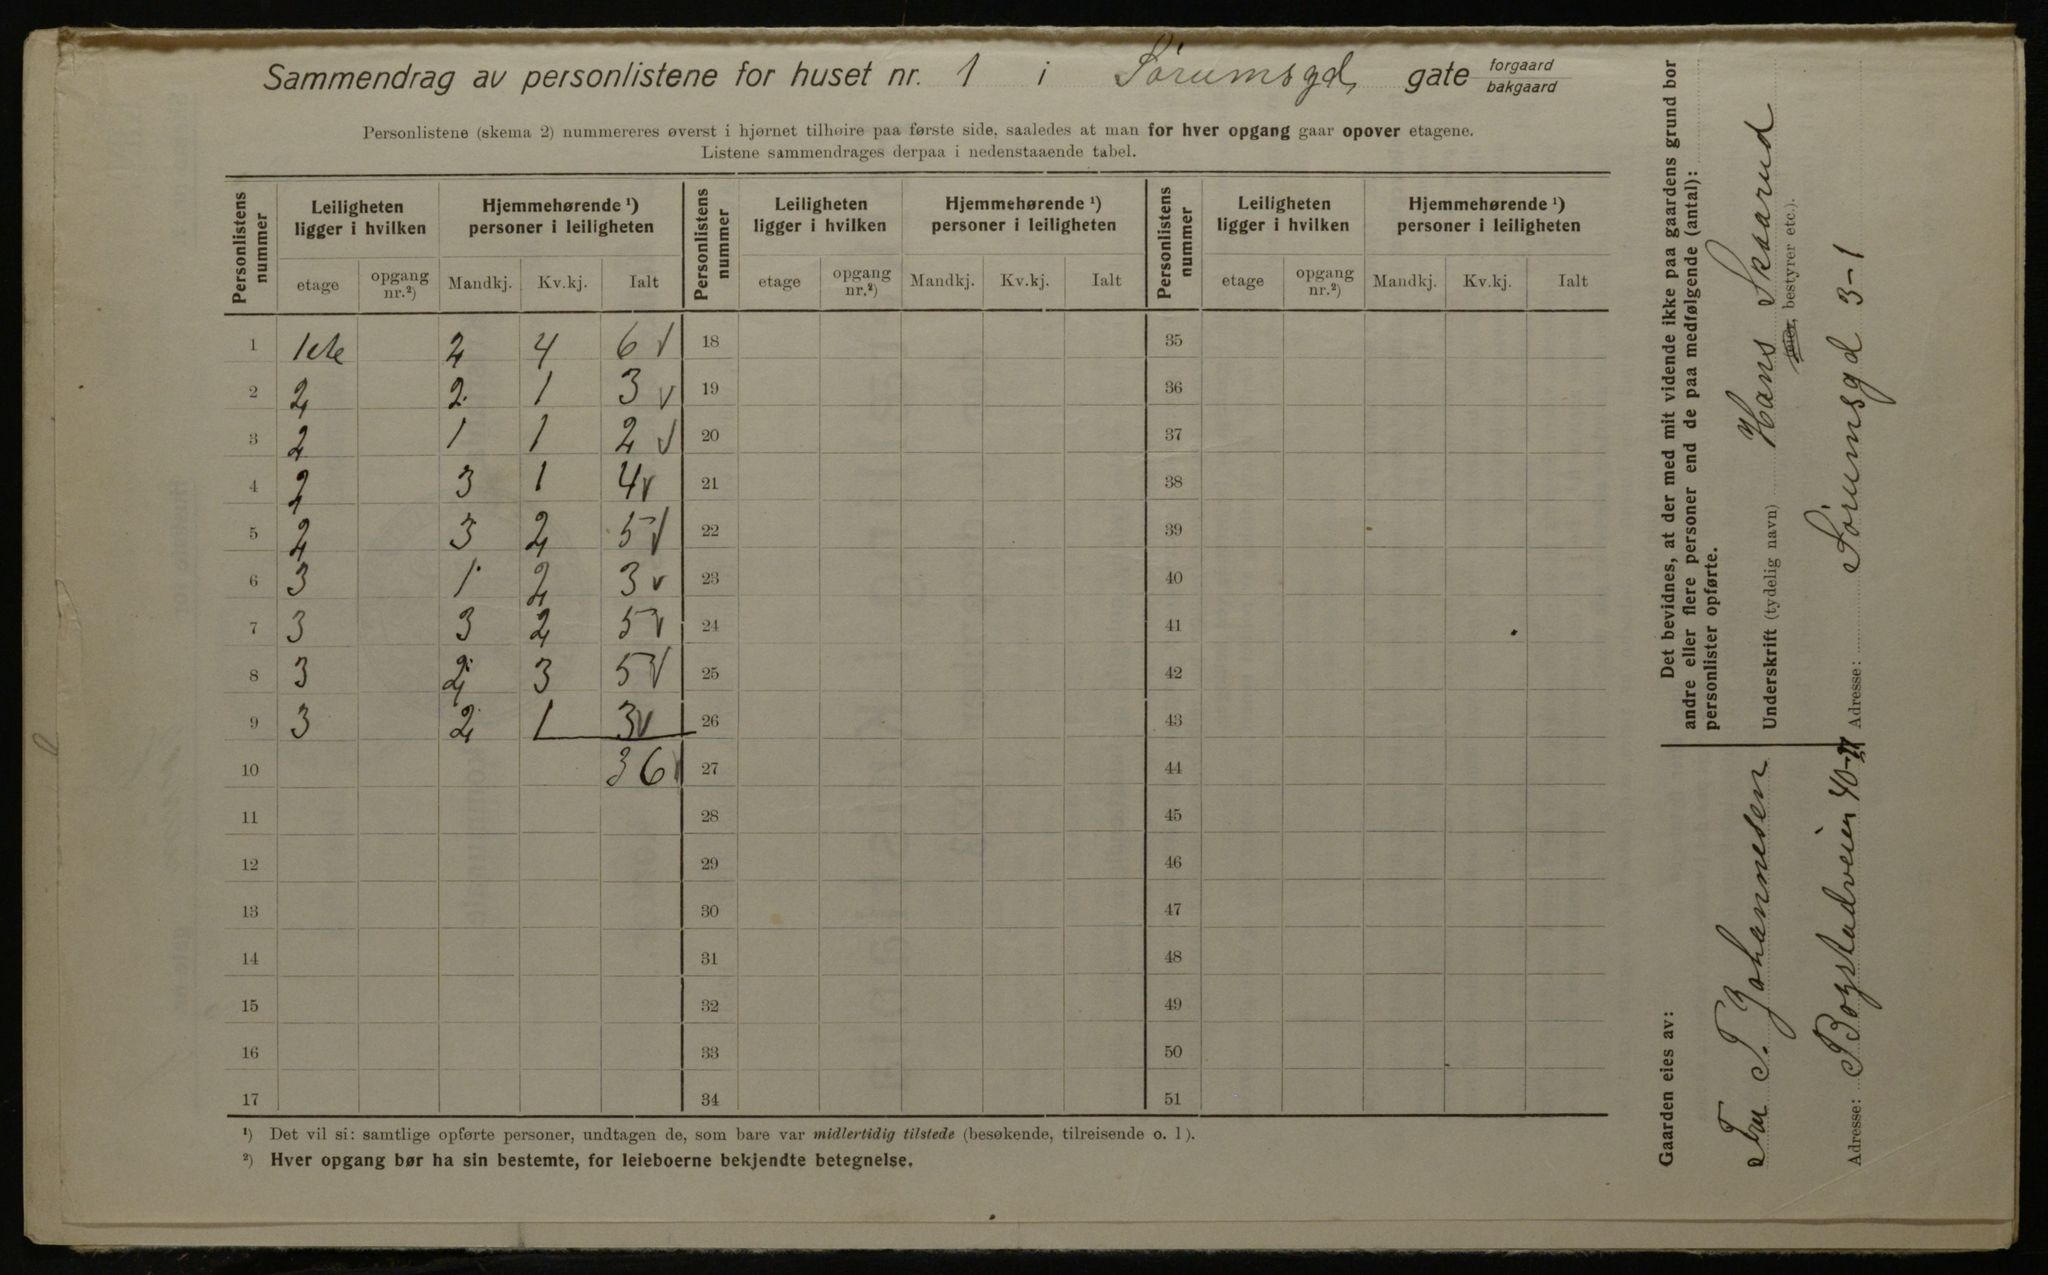 Sammendrag av personlistene for huset nr. 1 i Sørumsgd. gate forgaard
bakgaard
Personlistene (skema 2) nummereres øverst i hjørnet tilhøire paa første side, saaledes at man for hver opgang gaar opover etagene.
Listene sammendrages derpaa i nedenstaaende tabel.
Personlistens nummer | Leiligheten ligger i hvilken | Hjemmehørende ¹) personer i leiligheten | Personlistens nummer | Leiligheten ligger i hvilken | Hjemmehørende ¹) personer i leiligheten | Personlistens nummer | Leiligheten ligger i hvilken | Hjemmehørende ¹) personer i leiligheten
etage | opgang nr.²) | Mandkj. | Kv.kj. | Ialt | etage | opgang nr.²) | Mandkj. | Kv.kj. | Ialt | etage | opgang nr.²) | Mandkj. | Kv.kj. | Ialt
1 | 1ste | 2 | 4 | 6 √ | 18 | 35
2 | 2 | 2 | 1 | 3 √ | 19 | 36
3 | 2 | 1 | 1 | 2 √ | 20 | 37
4 | 2 | 3 | 1 | 4 √ | 21 | 38
5 | 2 | 3 | 2 | 5 √ | 22 | 39
6 | 3 | 1 | 2 | 3 √ | 23 | 40
7 | 3 | 3 | 2 | 5 √ | 24 | 41
8 | 3 | 2 | 3 | 5 √ | 25 | 42
9 | 3 | 2 | 1 | 3 √ | 26 | 43
10 | 36 √ | 27 | 44
11 | 28 | 45
12 | 29 | 46
13 | 30 | 47
14 | 31 | 48
15 | 32 | 49
16 | 33 | 50
17 | 34 | 51
¹) Det vil si: samtlige opførte personer, undtagen de, som bare var midlertidig tilstede (besøkende, tilreisende o. l).
²) Hver opgang bør ha sin bestemte, for leieboerne bekjendte betegnelse.
Det bevidnes, at der med mit vidende ikke paa gaardens grund bor
andre eller flere personer end de paa medfølgende (antal):
personlister opførte.
Underskrift (tydelig navn) Hans Skaarud
eier, bestyrer etc.).
Adresse: Sørumsgd 3-1
Gaarden eies av:
Fru T. Johannesen
Adresse: Bogstadveien 40-II